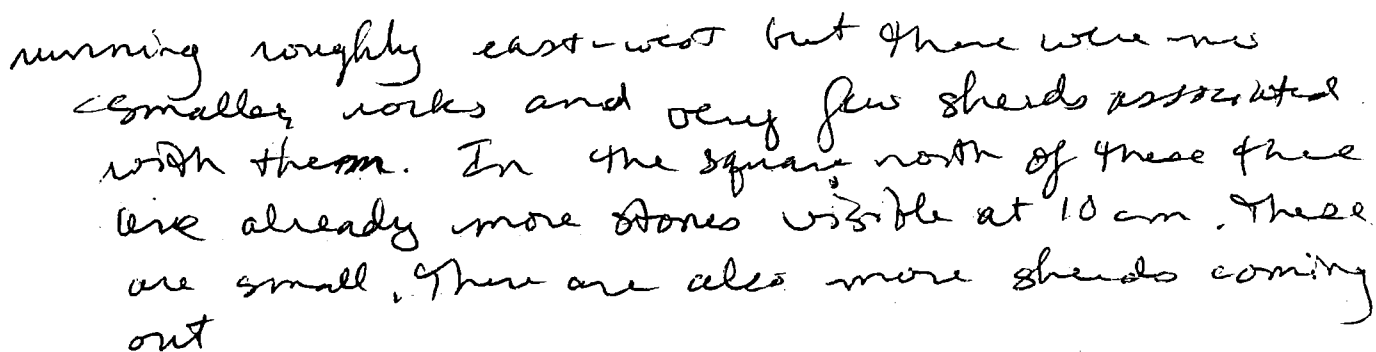 running roughly east-west but there were no
smaller rocks and very few sherds associated
with them. In the square north of these there
are already more stones visible at 10 cm. These
are small. There are also more sherds coming
out